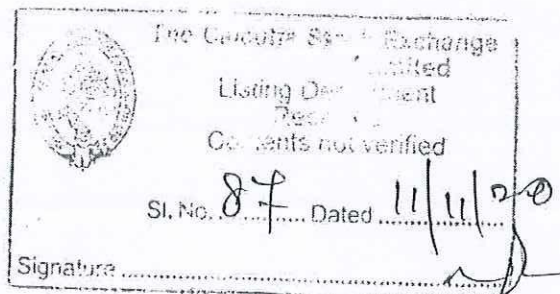 The Calcutta Stock Exchange
Limited
Listing Department
Received
Contents not verified
Sl. No. 87 Dated 11/11/20
Signature